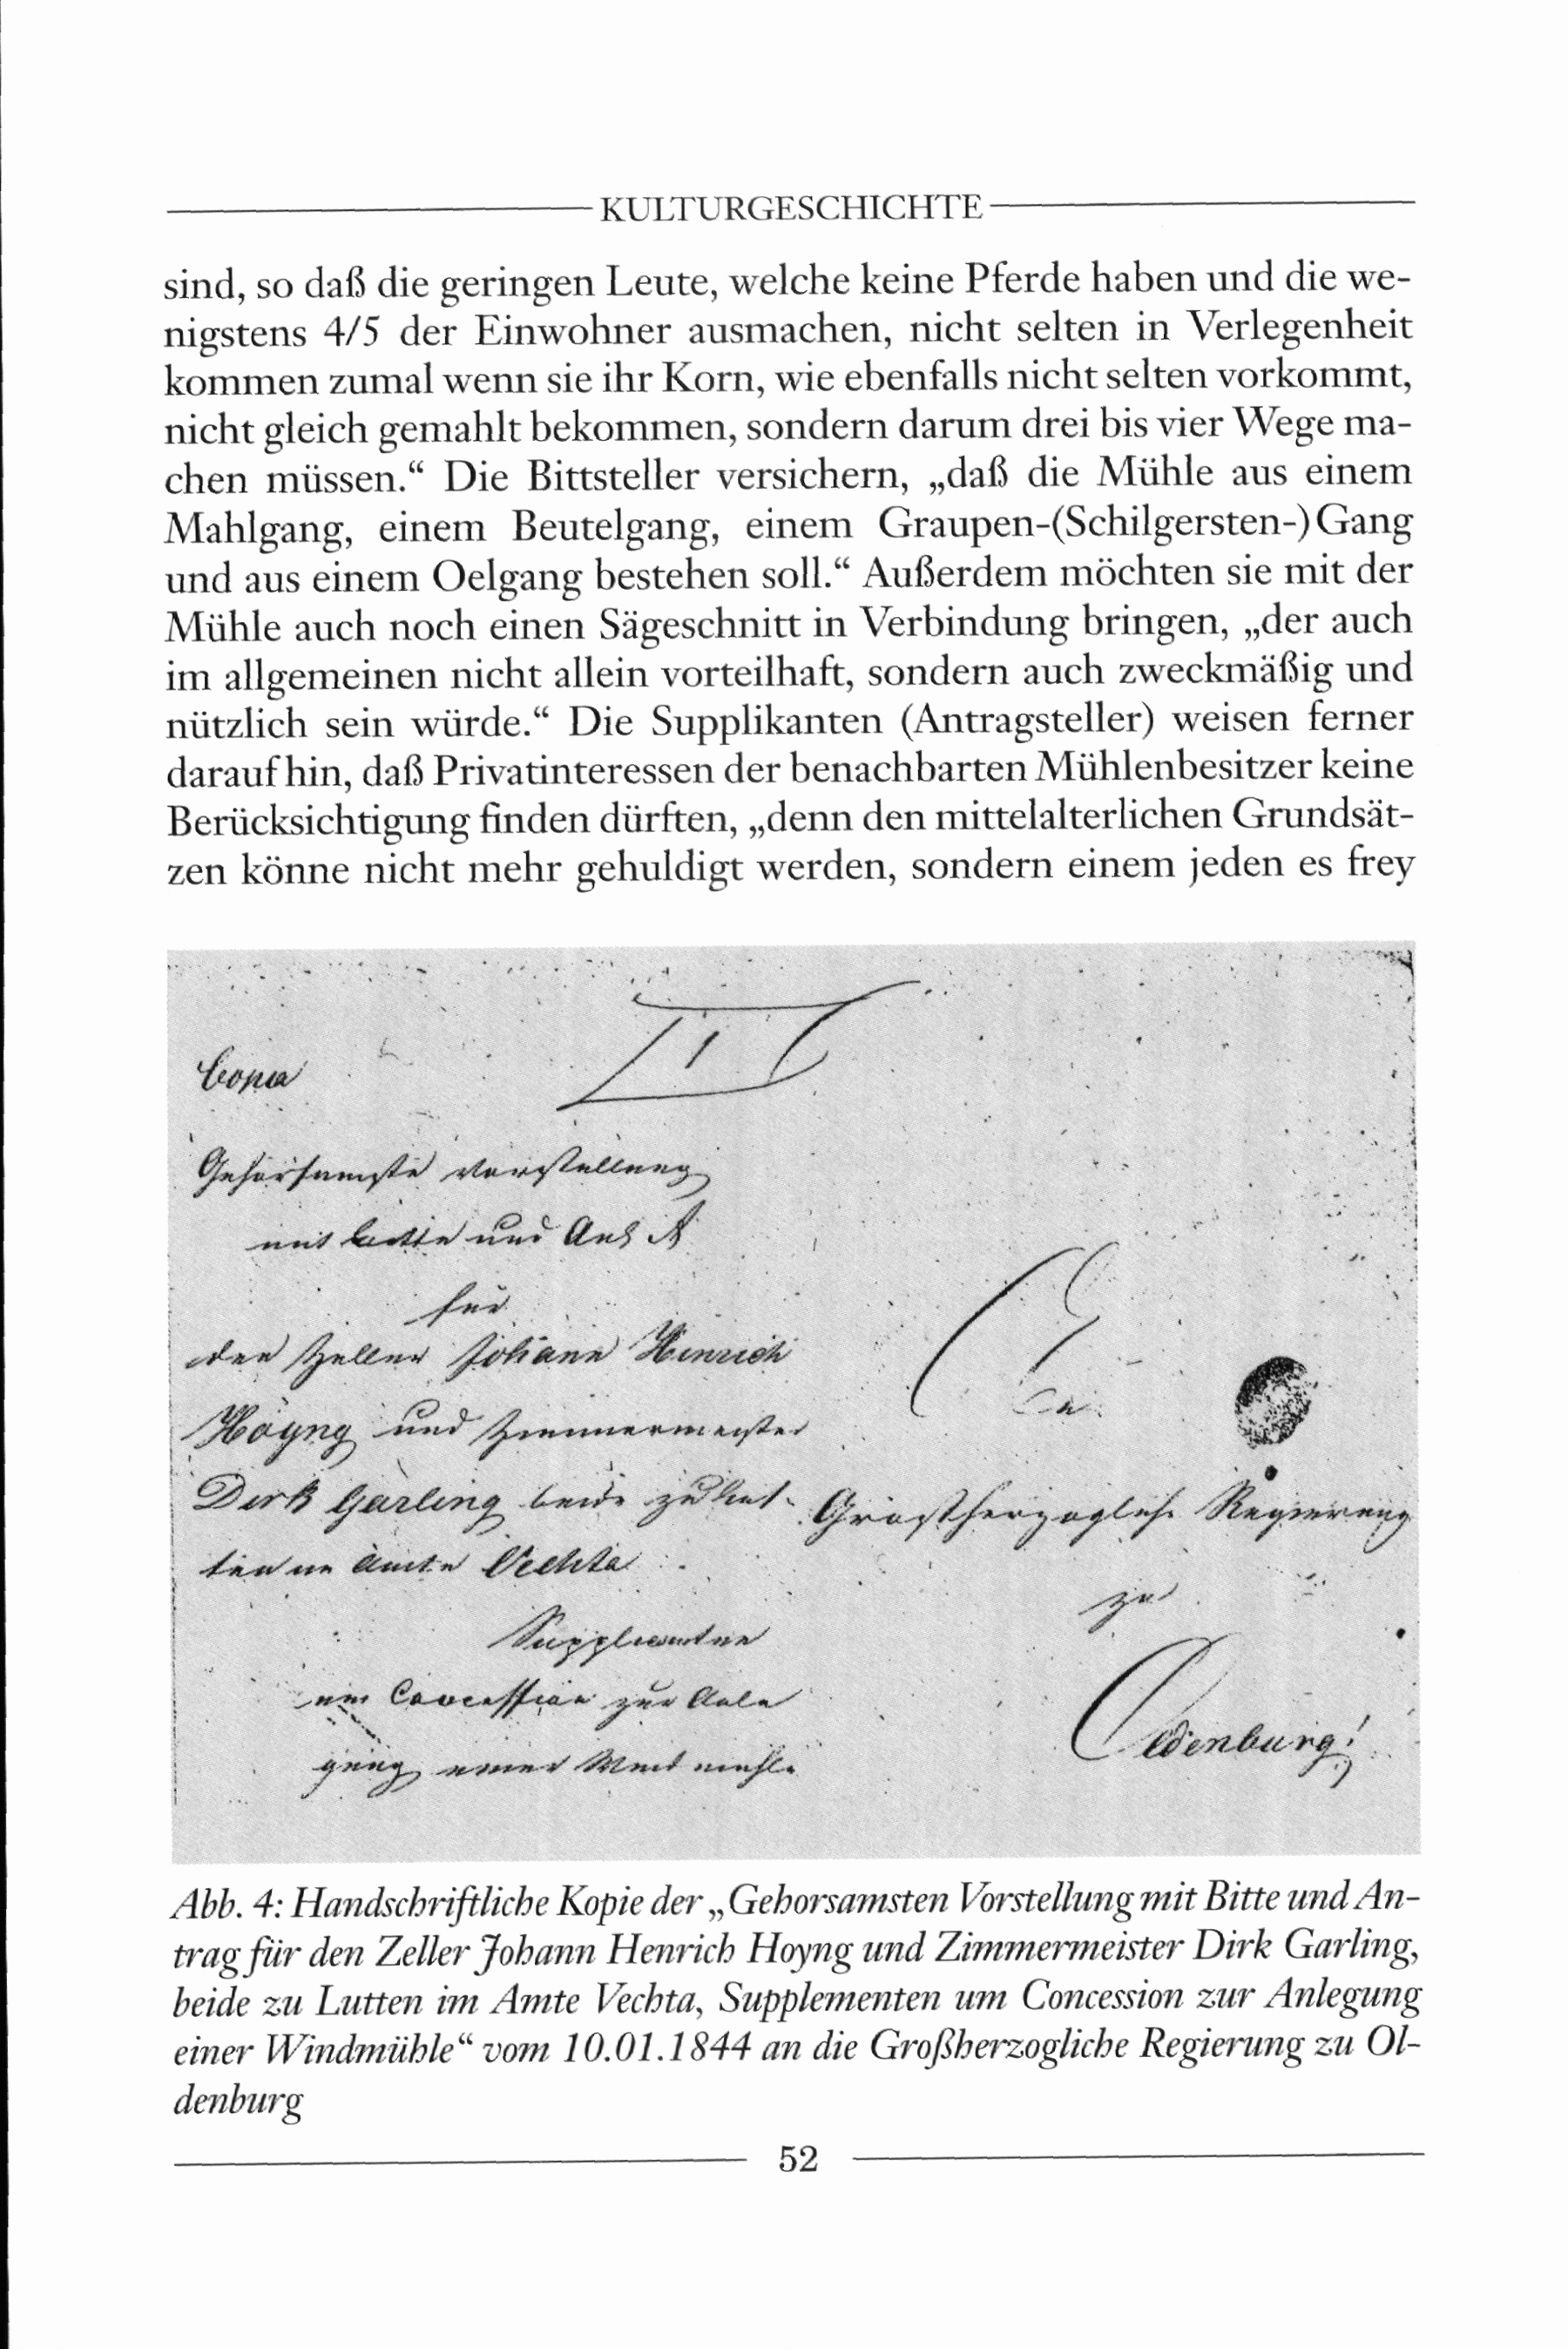 KULTURGESCHICHTE
sind, so daß die geringen Leute, welche keine Pferde haben und die we-
nigstens 4/5 der Einwohner ausmachen, nicht selten in Verlegenheit
kommen zumal wenn sie ihr Korn, wie ebenfalls nicht selten vorkommt,
nicht gleich gemahlt bekommen, sondern darum drei bis vier Wege ma-
chen müssen.“ Die Bittsteller versichern, „daß die Mühle aus einem
Mahlgang, einem Beutelgang, einem Graupen-(Schilgersten-) Gang
und aus einem Oelgang bestehen soll.“ Außerdem möchten sie mit der
Mühle auch noch einen Sägeschnitt in Verbindung bringen, „der auch
im allgemeinen nicht allein vorteilhaft, sondern auch zweckmäßig und
nützlich sein würde.“ Die Supplikanten (Antragsteller) weisen ferner
darauf hin, daß Privatinteressen der benachbarten Mühlenbesitzer keine
Berücksichtigung finden dürften, „denn den mittelalterlichen Grundsät-
zen könne nicht mehr gehuldigt werden, sondern einem jeden es frey
Copia
Gehorsamste Vorstellung
mit Bitte und Anl A
für
den Zeller Johann Hinrich
Höyng und Zimmermeister
Dirk Garling beide zu Lut-
ten im Amte Vechta
Supplicanten
um Concession zur Anle
gung einer Wind mühle
Großherzogliche Regierung
zu
Oldenburg!
Abb. 4: Handschriftliche Kopie der „Gehorsamsten Vorstellung mit Bitte und An-
trag für den Zeller Johann Henrich Hoyng und Zimmermeister Dirk Garling,
beide zu Lutten im Amte Vechta, Supplementen um Concession zur Anlegung
einer Windmühle“ vom 10.01.1844 an die Großherzogliche Regierung zu Ol-
denburg
52